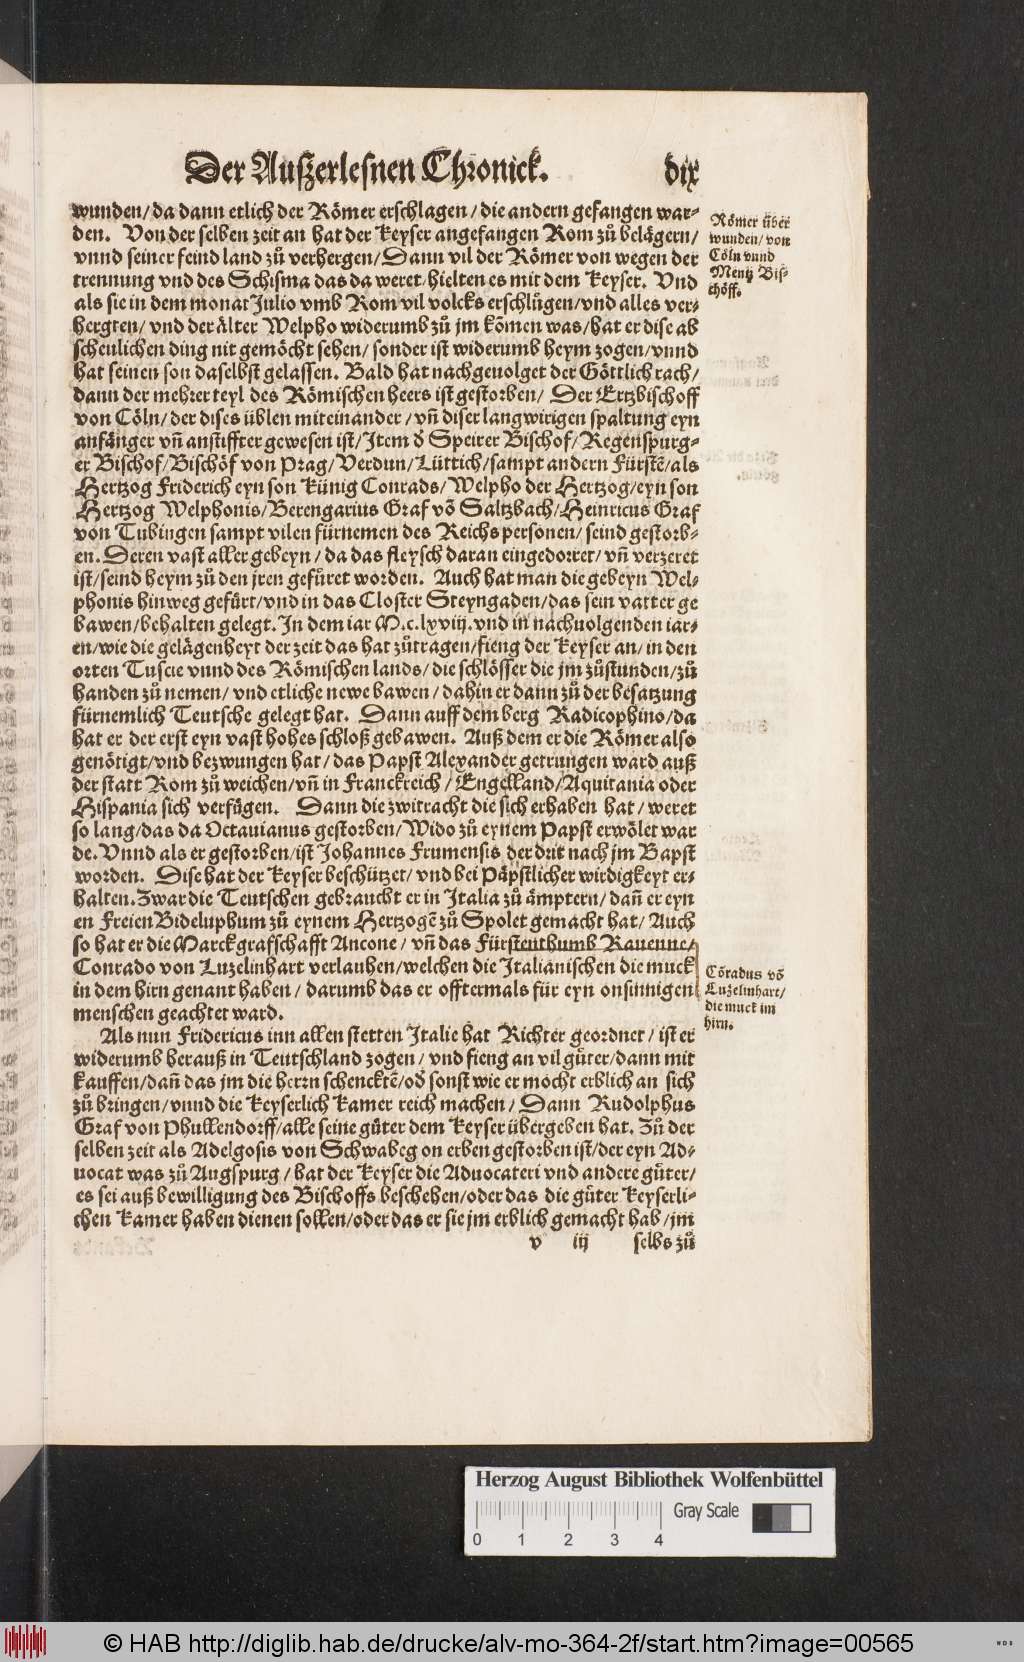 Der Außerlesnen Chronick. dix
wunden/ da dann etlich der Römer erschlagen/ die andern gefangen war-
den. Von der selben zeit an hat der Keyser angefangen Rom zů belägern/
vnnd seiner feind land zů verhergen/ Dann vil der Römer von wegen der
trennung vnd des Schisma das da weret/ hielten es mit dem Keyser. Vnd
als sie in dem monat Julio vmb Rom vil volcks erschlůgen/ vnd alles ver-
hergten/ vnd der älter Welpho widerumb zů jm kõmen was/ hat er dise ab
scheulichen ding nit gemöcht sehen/ sonder ist widerumb heym zogen/ vnnd
hat seinen son daselbst gelassen. Bald hat nachgeuolget der Göttlich rach/
dann der mehrer teyl des Römischen heers ist gestorben/ Der Ertzbischoff
von Cöln/ der dises üblen miteinander/ vñ diser langwirigen spaltung eyn
anfänger vñ anstiffter gewesen ist/ Item d̾ Speirer Bischof/ Regenspurg-
er Bischof/ Bischöf von Prag/ Verdun/ Lüttich/ sampt andern Fürstẽ/ als
Hertzog Friderich eyn son Künig Conrads/ Welpho der Hertzog/ eyn son
Hertzog Welphonis/ Berengarius Graf võ Saltzbach/ Heinricus Graf
von Tubingen sampt vilen fürnemen des Reichs personen/ seind gestorb-
en. Deren vast aller gebeyn/ da das fleysch daran eingedorret/ vñ verzeret
ist/ seind heym zů den jren gefůret worden. Auch hat man die gebeyn Wel-
phonis hinweg gefůrt/ vnd in das Closter Steyngaden/ das sein vatter ge
bawen/ behalten gelegt. In dem iar M.c.lxviij. vnd in nachuolgenden iar-
en/ wie die gelägenheyt der zeit das hat zůtragen/ fieng der Keyser an/ in den
orten Tuscie vnnd des Römischen lands/ die schlösser die jm zůstunden/ zů
handen zů nemen/ vnd etliche newe bawen/ dahin er dann zů der besatzung
fürnemlich Teutsche gelegt hat. Dann auff dem berg Radicophino/ da
hat er der erst eyn vast hohes schloß gebawen. Auß dem er die Römer also
genötigt/ vnd bezwungen hat/ das Papst Alexander getrungen ward auß
der statt Rom zů weichen/ vñ in Franckreich/ Engelland/ Aquitania oder
Hispania sich verfůgen. Dann die zwitracht die sich erhaben hat/ weret
so lang/ das da Octauianus gestorben/ Wido zů eynem Papst erwölet war
de. Vnnd als er gestorben/ ist Johannes Frumensis der drit nach jm Bapst
worden. Dise hat der Keyser beschützet/ vnd bei Päpstlicher wirdigkeyt er-
halten. Zwar die Teutschen gebraucht er in Italia zů ämptern/ dañ er eyn
en Freien Bideluphum zů eynem Hertzogẽ zů Spolet gemacht hat/ Auch
so hat er die Marckgrafschafft Ancone/ vñ das Fürstenthumb Rauenne/
Conrado von Luzelinhart verlauhen/ welchen die Italianischen die muck
in dem hirn genant haben/ darumb das er offtermals für eyn onsinnigen
menschen geachtet ward.
Als nun Fridericus inn allen stetten Italie hat Richter geordnet/ ist er
widerumb herauß in Teutschland zogen/ vnd fieng an vil gůter/ dann mit
kauffen/ dañ das jm die herrn schencktẽ/ od̾ sonst wie er mocht erblich an sich
zů bringen/ vnnd die Keyserlich Kamer reich machen/ Dann Rudolphus
Graf von Phullendorff/ alle seine gůter dem Keyser übergeben hat. Zů der
selben zeit als Adelgosis von Schwabeg on erben gestorben ist/ der eyn Ad-
uocat was zů Augspurg/ hat der Keyser die Aduocateri vnd andere gůter/
es sei auß bewilligung des Bischoffs beschehen/ oder das die gůter Keyserli-
chen Kamer haben dienen sollen/ oder das er sie jm erblich gemacht hab/ jm
v iij selbs zů
Römer über
wunden/ von
Cöln vnnd
Mentz Bis-
chöff.
Cõradus võ
Luzelinhart/
die muck im
hirn.
Herzog August Bibliothek Wolfenbüttel
Gray Scale
0 1 2 3 4
© HAB http://diglib.hab.de/drucke/alv-mo-364-2f/start.htm?image=00565